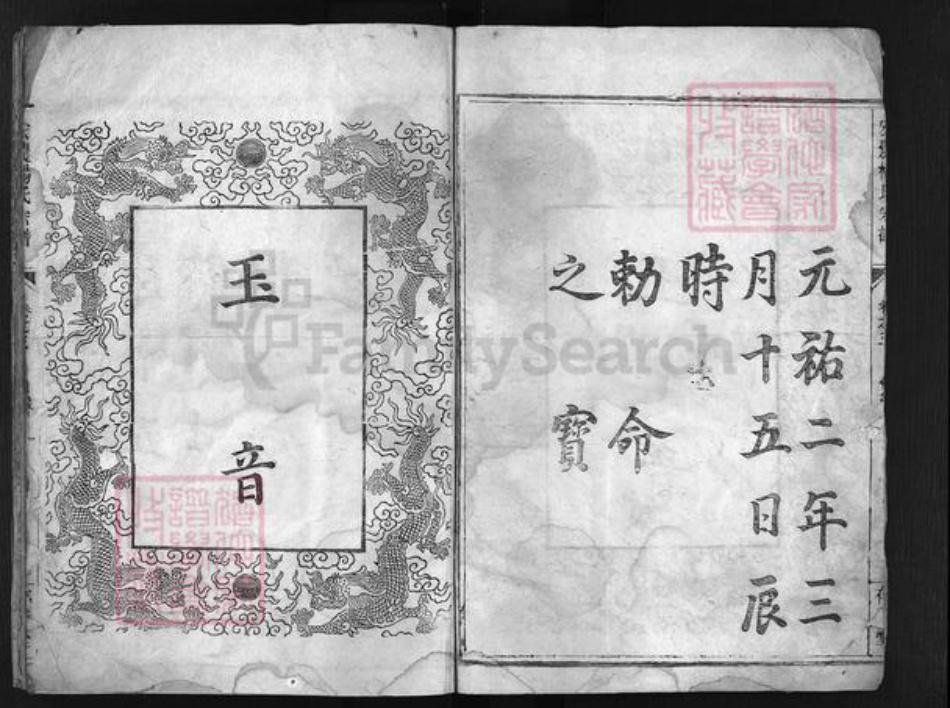 元祐二年三
月十五日辰
時
勅命
之寶
玉音
FamilySearch